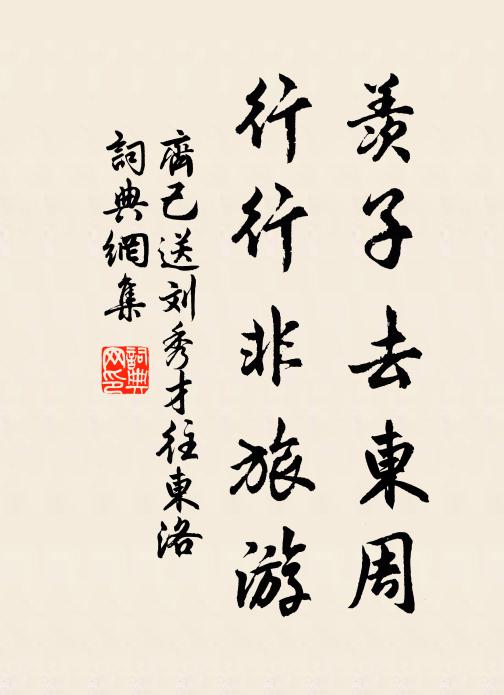 羨子去東周
行行非旅游
齊己送刘秀才往東洛
詞典網集
詞典
网印